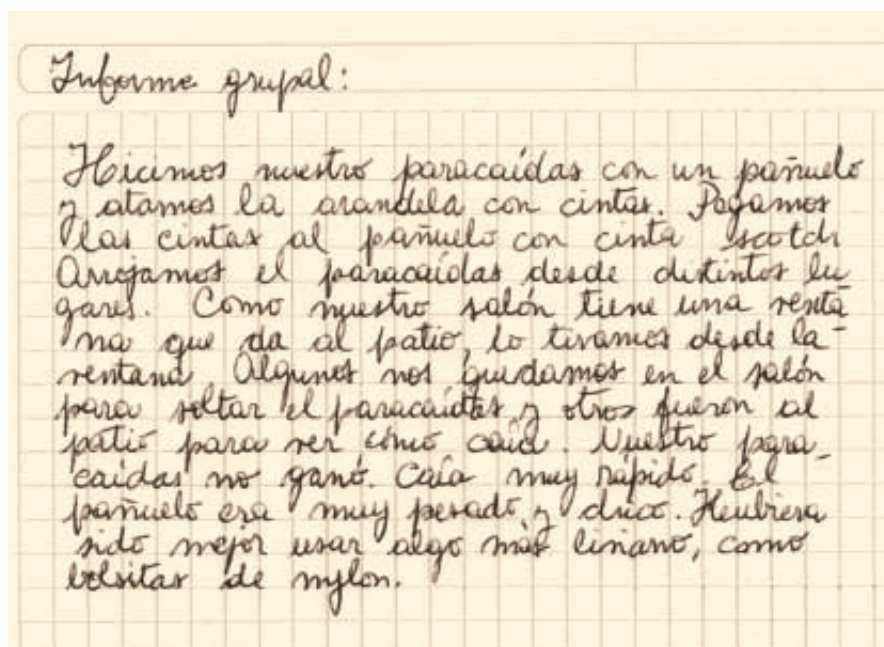 Informe grupal:
Hicimos nuestro paracaídas con un pañuelo
y atamos la arandela con cintas. Pegamos
las cintas al pañuelo con cinta scotch
Arrojamos el paracaídas desde distintos lu
gares. Como nuestro salón tiene una venta
na que da al patio, lo tiramos desde la
ventana Algunos nos quedamos en el salón
para soltar el paracaídas y otros fueron al
patio para ver cómo caía. Nuestro para_
caídas no ganó. Caía muy rápido. El
pañuelo era muy pesado y chico. Hubiera
sido mejor usar algo más liviano, como
bolsitas de nylon.